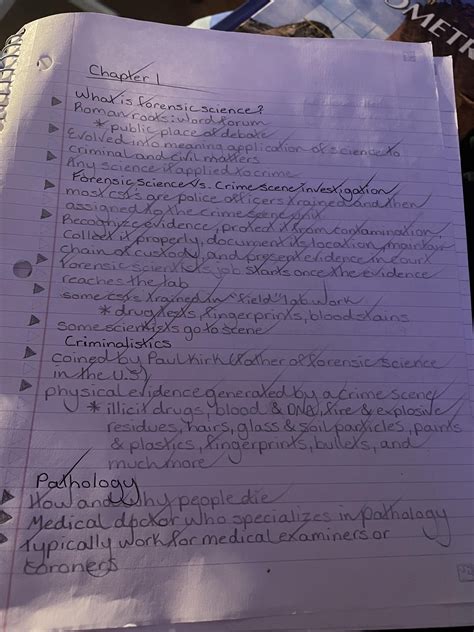 OMETR
Chapter 1
What is forensic science?
Roman roots: word forum
* public place of debate
Evolved into meaning application of science to
criminal and civil matters
Any science if applied to crime
Forensic Science vs. Crime scene investigation
most CSI's are police officers trained and then
assigned to the crime scene unit
Recognize evidence, protect it from contamination,
Collect it properly, document its location, maintain
chain of custody, and present evidence in court
Forensic scientists job starts once the evidence
reaches the lab
some CSI's trained in "field" lab work
* drug tests, fingerprints, bloodstains
Some scientists go to scene
Criminalistics
coined by Paul Kirk (father of forensic science
in the U.S)
physical evidence generated by a crime scene
* illicit drugs, blood & DNA, fire & explosive
residues, hairs, glass & soil particles, paints
& plastics, fingerprints, bullets, and
much more
Pathology
How and why people die
Medical doctor who specializes in pathology
Typically work for medical examiners or
coroners